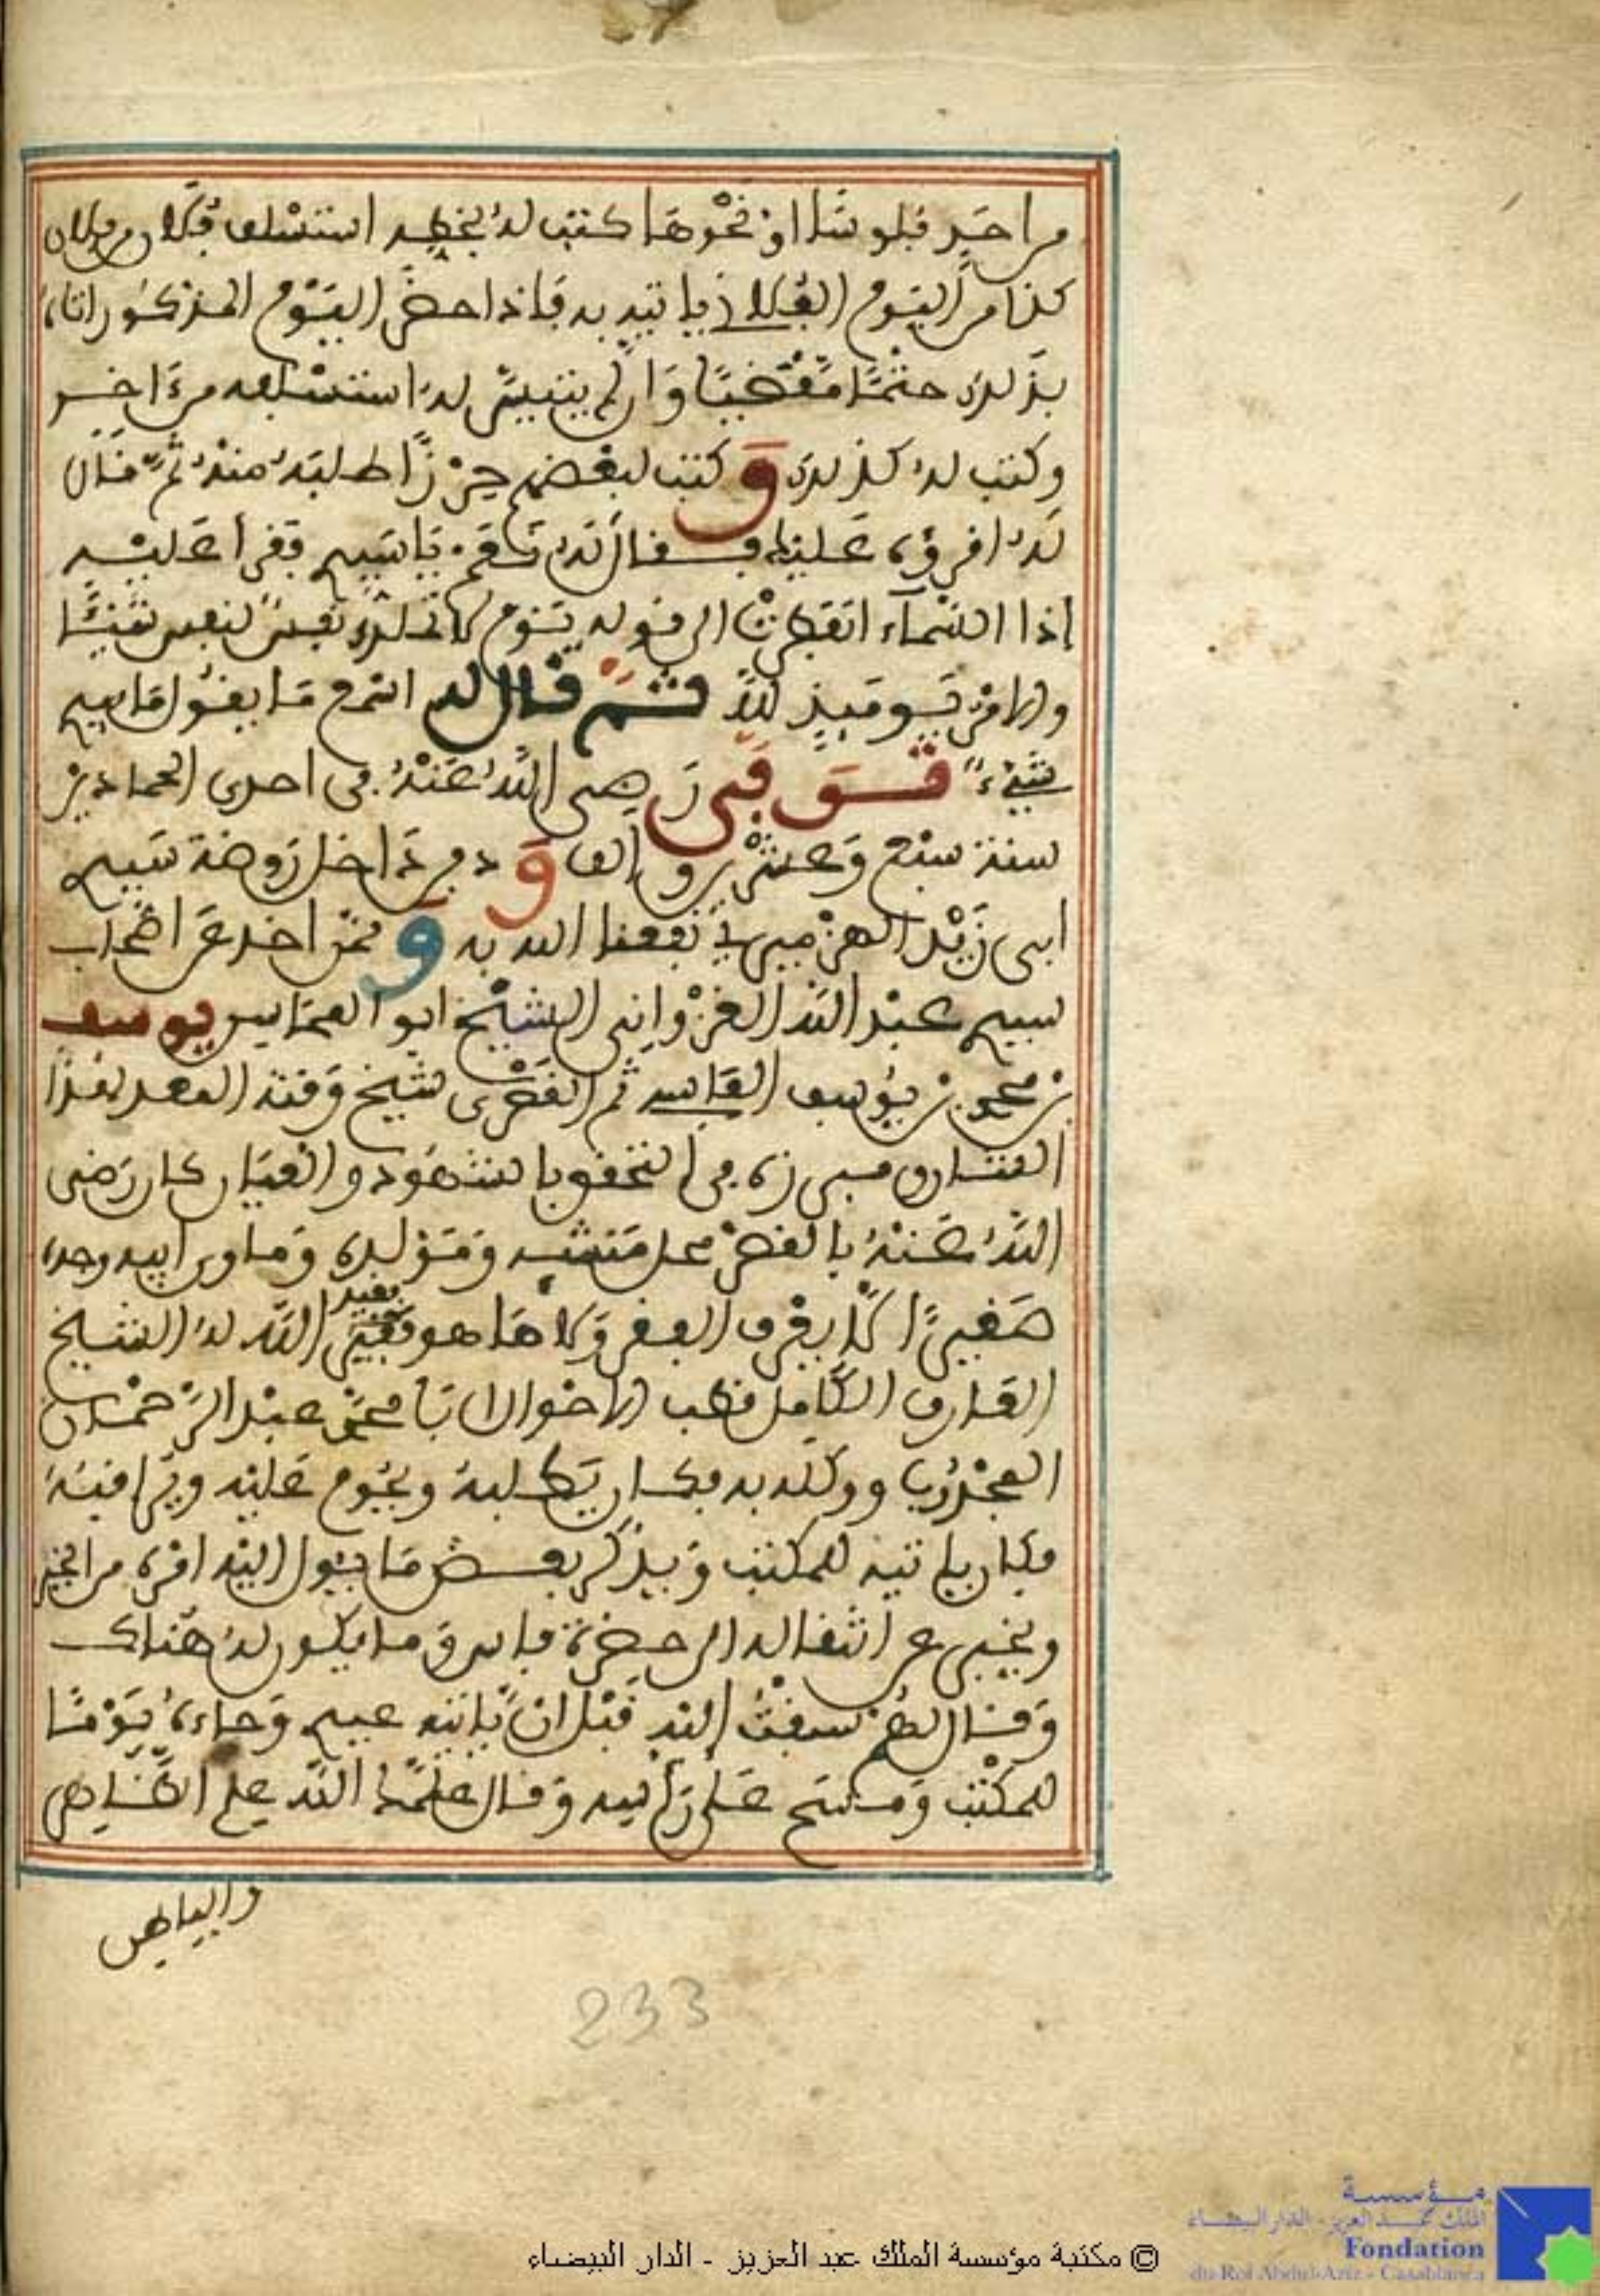 من احد فلوسا او نحوها كتب له بخطه استسلف فلان من فلان
كذا من اليوم الفلاني ياتيه به فاذا حضر اليوم المذكور اتاه
بذلك حتما مقضيا وان لم يتيسر له استسلفه من ءاخر
وكتب له كذلك وكتب لبعضهم حرزا طلبه منه ثم قال
له اقرؤه عليك فقال له نعم يا سيدي فقرا عليه
إذا السماء انفطرت الى قوله يوم لا تملك نفس لنفس شيئا
والامر يومئذ لله ثم قال له اسمع ما يقول ما بيدي
شيء توفي رضي الله عنه في احدى الجمادين
سنة سبع وعشرين والف ودفن داخل روضة سيدي
ابي زيد الهزميري نفعنا الله به وممن اخذ عن اصحاب
سيدي عبد الله الغزواني الشيخ ابو المحاسن يوسف
بن محمد بن يوسف الفاسي ثم القصري شيخ وقته
العارف في التحقق بالشهود والعيان كان رضي
الله عنه بالقصر محل منشئه ومولده وماوى ابيه وجده
صغيرا لا يعرف الفقر ولا ما هو فقيض الله له الشيخ
العارف الكامل قطب الاحوال ابا محمد عبد الرحمن
المجذوب ووكله به فكان يطلبه ويحوم عليه ويراقبه
فكان ياتيه للمكتب ويذكر بعض ما يئول اليه امره من الخير
ويخبر عن انتقاله الى حضرة فاس وما يكون له هناك
وقال لهم سبقت اليه قبل ان ياتيه غيري وجاءه يوما
للمكتب ومسح على راسه وقال علمك الله علم الظاهر
والباطن
233
© مكتبة مؤسسة الملك عبد العزيز - الدار البيضاء
مؤسسة
الملك عبد العزيز - الدار البيضاء
Fondation
du Roi Abdul-Aziz - Casablanca